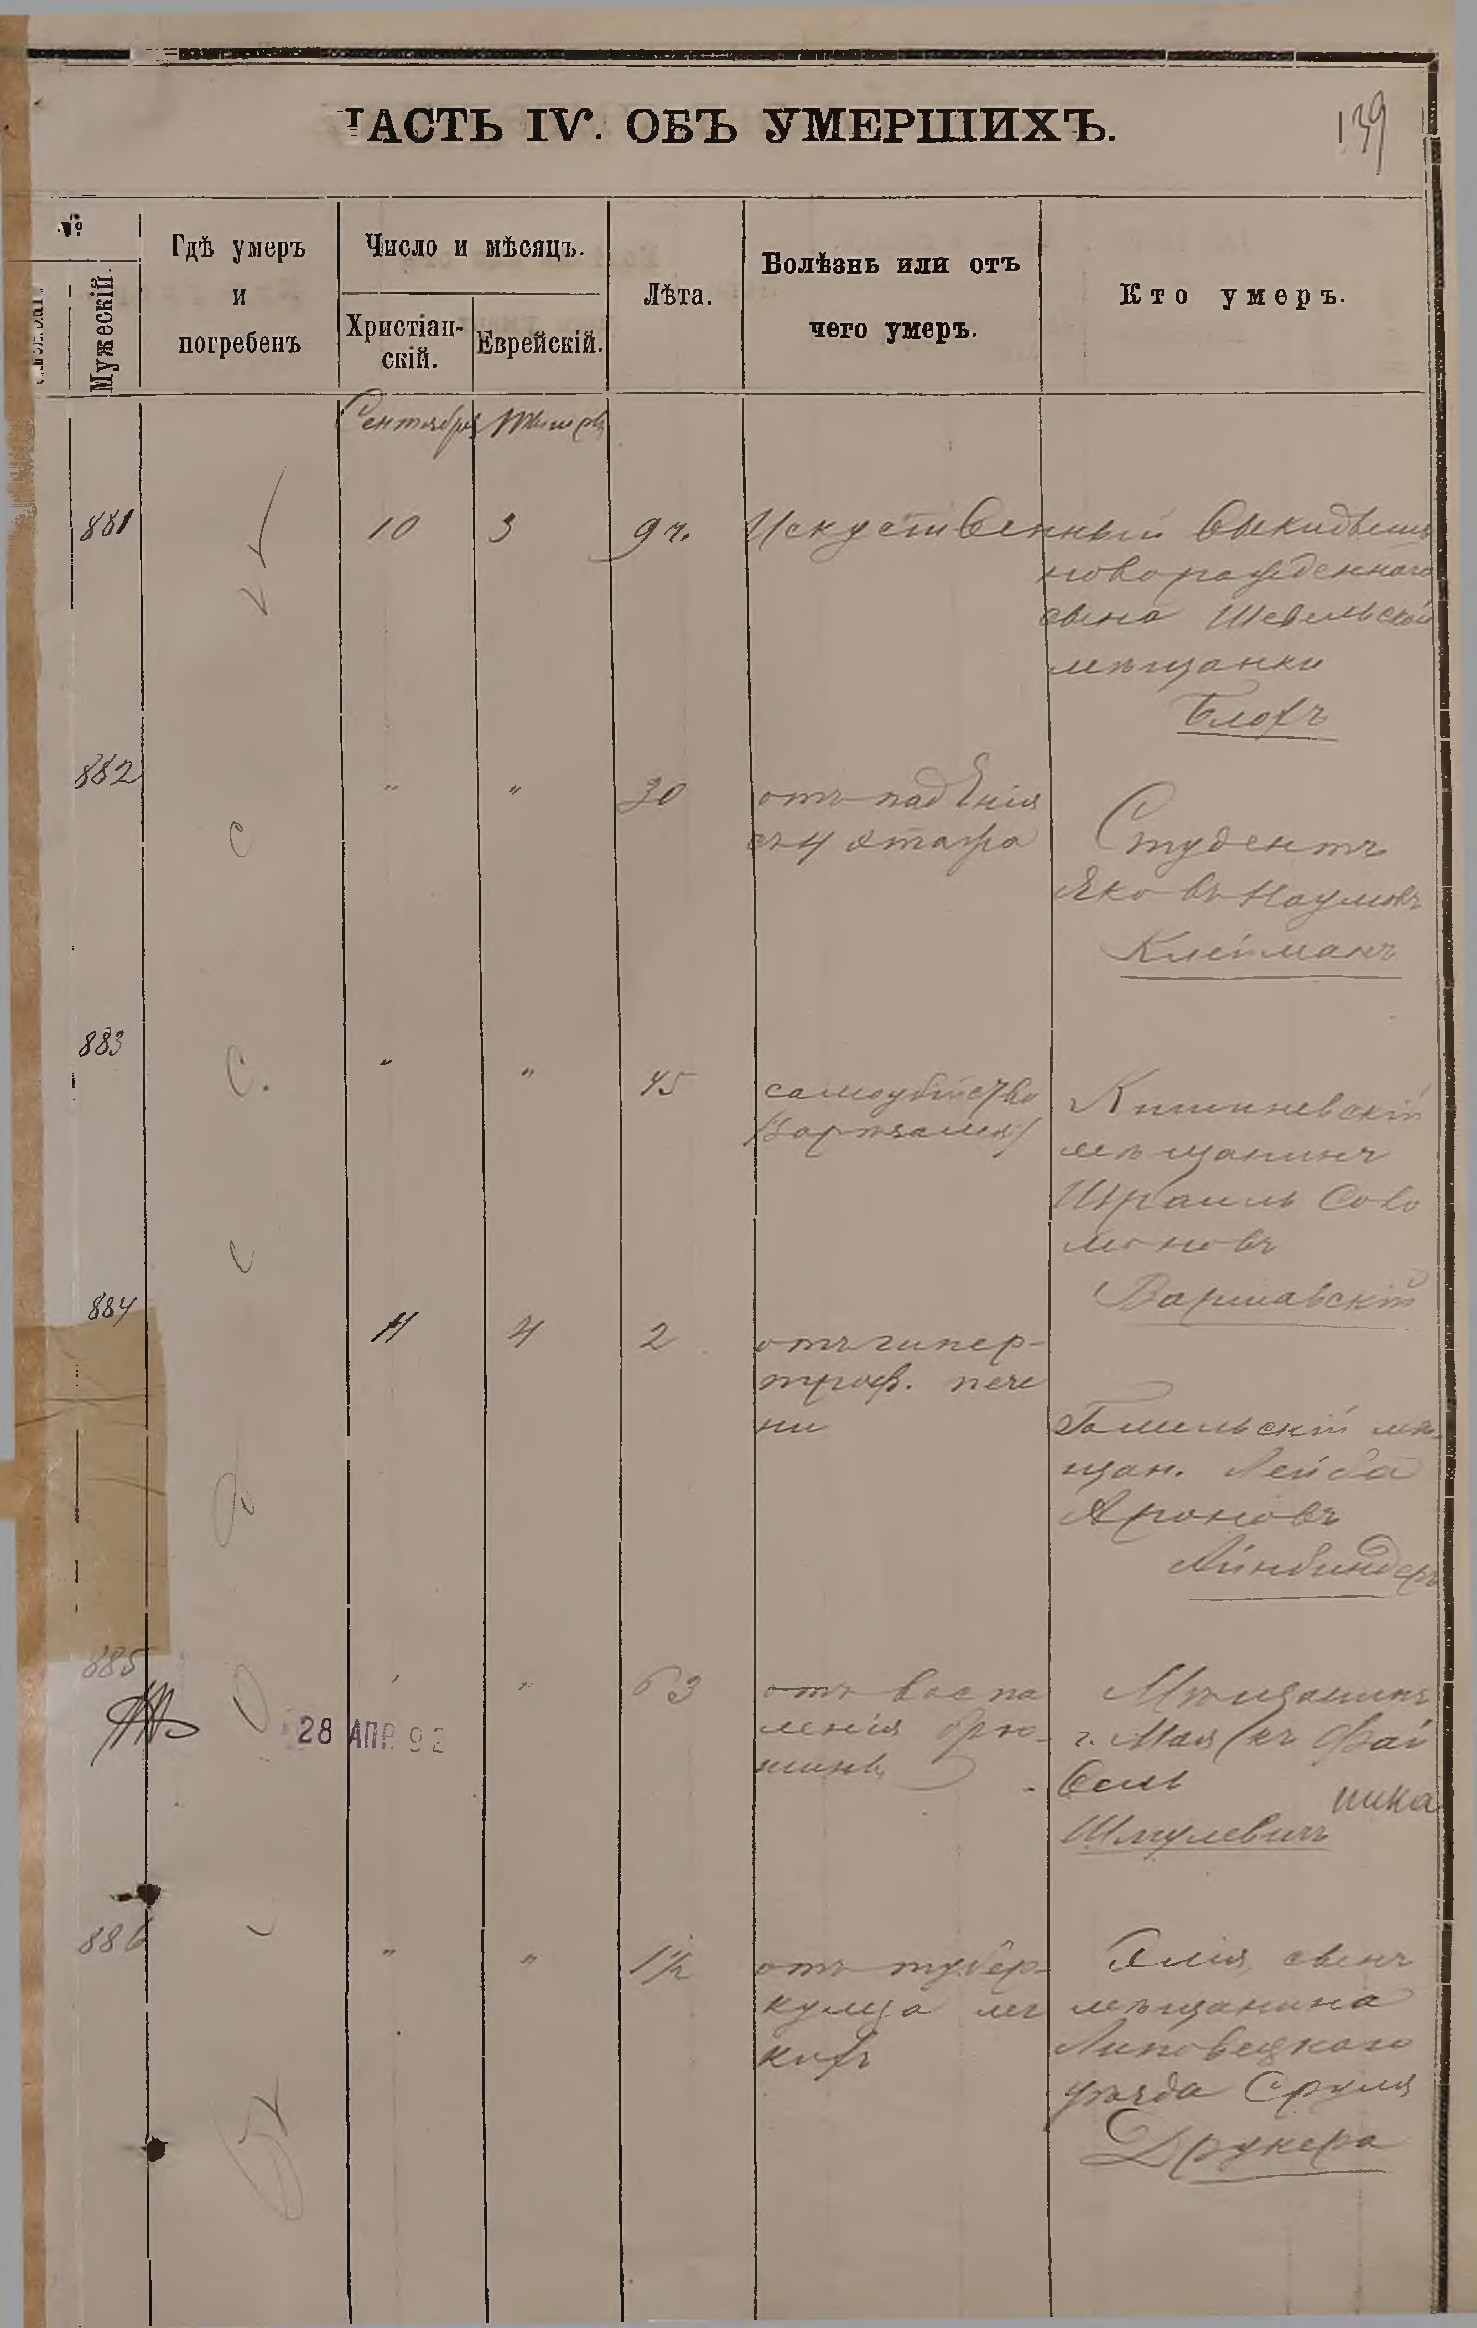 ЧАСТЬ IV. ОБЪ УМЕРШИХЪ.
139
№
Мужескій.
Гдѣ умеръ
и
погребенъ
Число и мѣсяцъ.
Христіан-
скій.
Еврейскій.
Лѣта.
Болѣзнь или отъ
чего умеръ.
Кто умеръ.
Сентября Тишри
881 10 3 9 ч. Искуственный выкидышъ
новорожденнаго
сына Шевельской
мѣщанки
Блохъ
882 " " 30 отъ паденія
съ 4 этажа
Студентъ
Яковъ Наумовъ
Клейманъ
883 " " 45 самоубійство
Кишиневскій
мѣщанинъ
Израиль Соло
моновъ
Варшавскій
884 11 4 2 отъ гипер-
троф. пече
ни
Гомельскій мѣ-
щан. Лейба
Ароновъ
Айнбиндеръ
885 " " 63 отъ воспа
ленія брю-
шины
Мѣщанинъ
г. Маякъ Фай
вель
шика
Шмулевичъ
28 АПР 92
886 " " 1½ отъ тубер-
кулеза лег
кихъ
Элія, сынъ
мѣщанина
Липовецкаго
уѣзда Сруля
Друкера